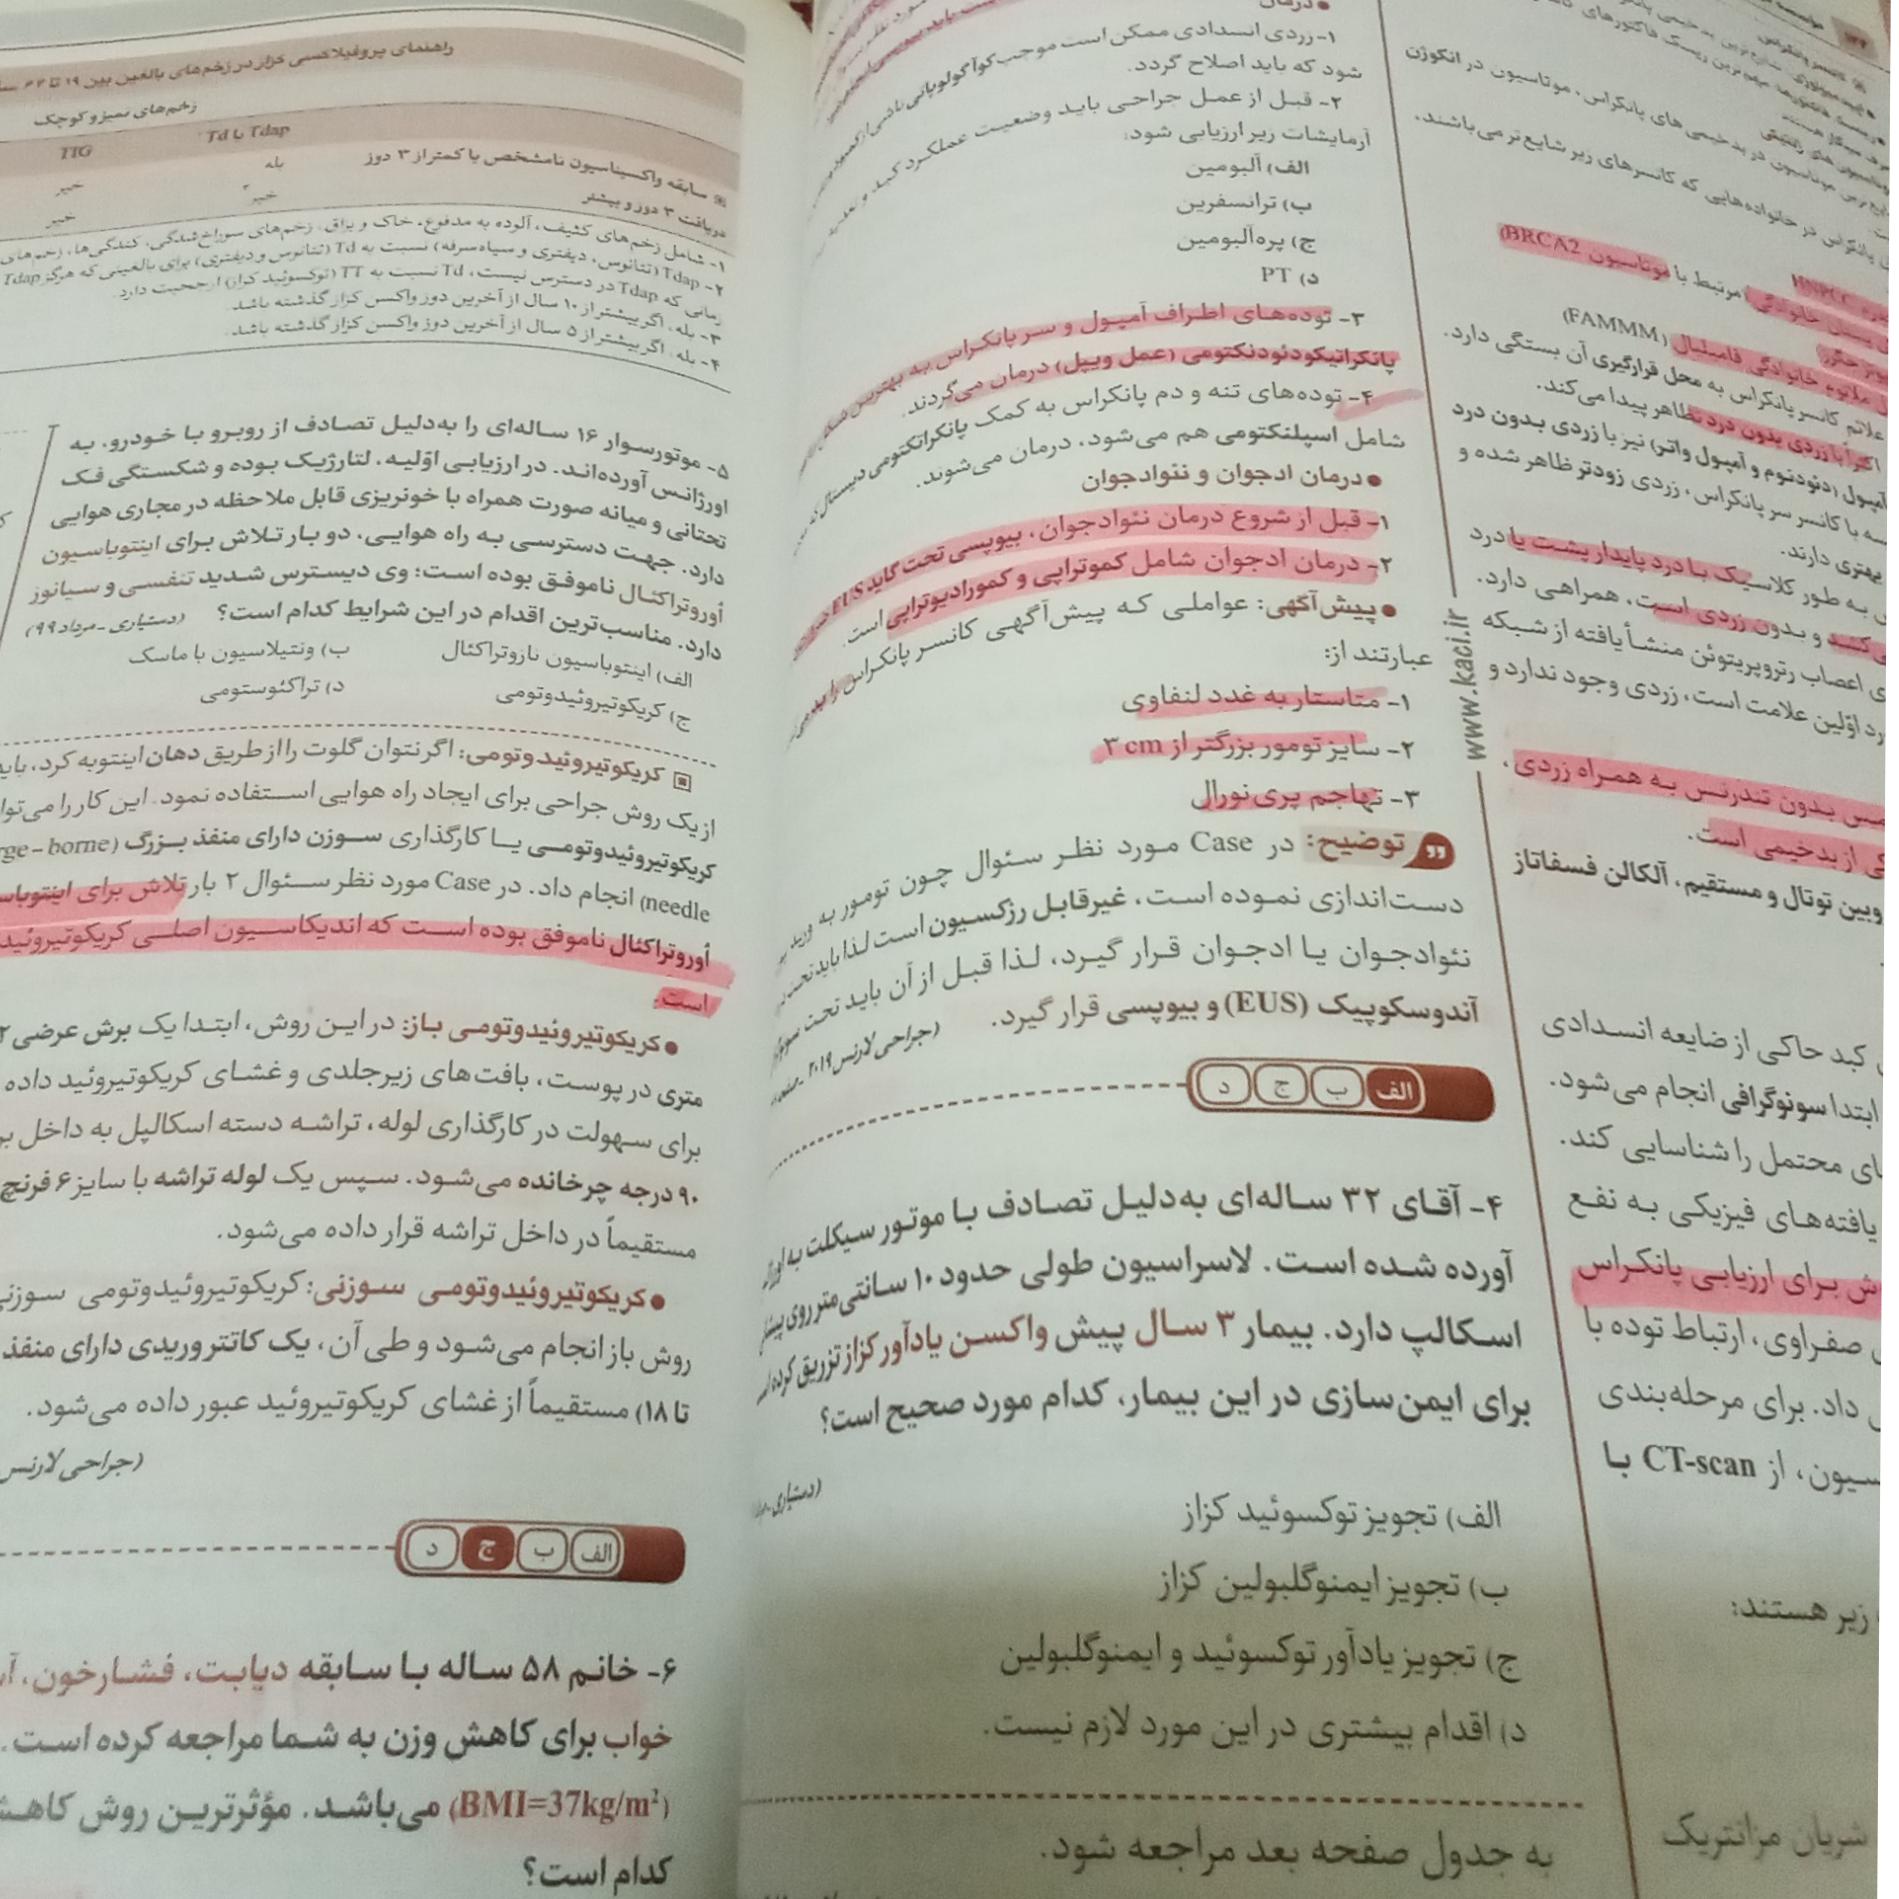 موتاسیون در انکوژن
موتاسیون در بدخیمی‌های پانکراس،
پانکراس در خانواده‌هایی که کانسرهای زیر شایع‌تر می‌باشند،
HNPCC
پستان خانوادگی (مرتبط با موتاسیون BRCA2)
ملانوم خانوادگی فامیلیال (FAMMM)
علائم کانسر پانکراس به محل قرارگیری آن بستگی دارد.
اکثراً با زردی بدون درد تظاهر پیدا می‌کند.
آمپول (دئودنوم و آمپول واتر) نیز با زردی بدون درد
با کانسر سر پانکراس، زردی زودتر ظاهر شده و
بهتری دارند.
به طور کلاسیک با درد پایدار پشت یا درد
می‌کشد و بدون زردی است، همراهی دارد.
اعصاب رتروپریتوئن منشأ یافته از شبکه
اوّلین علامت است، زردی وجود ندارد و
بدون تندرنس به همراه زردی،
از بدخیمی است.
توتال و مستقیم، آلکالن فسفاتاز
کبد حاکی از ضایعه انسدادی
ابتدا سونوگرافی انجام می‌شود.
محتمل را شناسایی کند.
یافته‌های فیزیکی به نفع
برای ارزیابی پانکراس
صفراوی، ارتباط توده با
داد. برای مرحله‌بندی
از CT-scan با
زیر هستند:
شریان مزانتریک
www.kaci.ir
● درمان
۱- زردی انسدادی ممکن است موجب کوآگولوپاتی ناشی از کمبود
شود که باید اصلاح گردد.
۲- قبل از عمل جراحی باید وضعیت عملکرد کبد و تغذیه
آزمایشات زیر ارزیابی شود:
الف) آلبومین
ب) ترانسفرین
ج) پره‌آلبومین
د) PT
۳- توده‌های اطراف آمپول و سر پانکراس به بهترین شکل
پانکراتیکودئودنکتومی (عمل ویپل) درمان می‌گردند.
۴- توده‌های تنه و دم پانکراس به کمک پانکراتکتومی دیستال که
شامل اسپلنکتومی هم می‌شود، درمان می‌شوند.
● درمان ادجوان و نئوادجوان
۱- قبل از شروع درمان نئوادجوان، بیوپسی تحت گاید EUS
۲- درمان ادجوان شامل کموتراپی و کمورادیوتراپی است.
● پیش‌آگهی: عواملی که پیش‌آگهی کانسر پانکراس را بد
عبارتند از:
۱- متاستاز به غدد لنفاوی
۲- سایز تومور بزرگتر از ۳ cm
۳- تهاجم پری‌نورال
توضیح: در Case مورد نظر سئوال چون تومور به ورید
دست‌اندازی نموده است، غیرقابل رزکسیون است لذا باید تحت
نئوادجوان یا ادجوان قرار گیرد، لذا قبل از آن باید تحت
آندوسکوپیک (EUS) و بیوپسی قرار گیرد.
(جراحی لارنس ۲۰۱۹ - صفحه
الف ب ج د
۴- آقای ۳۲ ساله‌ای به‌دلیل تصادف با موتور سیکلت به
آورده شده است. لاسراسیون طولی حدود ۱۰ سانتی‌متر روی
اسکالپ دارد. بیمار ۳ سال پیش واکسن یادآور کزاز تزریق کرده
برای ایمن‌سازی در این بیمار، کدام مورد صحیح است؟
(دستیاری -
الف) تجویز توکسوئید کزاز
ب) تجویز ایمنوگلبولین کزاز
ج) تجویز یادآور توکسوئید و ایمنوگلبولین
د) اقدام بیشتری در این مورد لازم نیست.
به جدول صفحه بعد مراجعه شود.
راهنمای پروفیلاکسی کزاز در زخم‌های بالغین بین ۱۹ تا ۶۴
زخم‌های تمیز و کوچک
Tdap یا Td TIG
سابقه واکسیناسیون نامشخص یا کمتر از ۳ دوز بله خیر
دریافت ۳ دوز و بیشتر خیر۳ خیر
۱- شامل زخم‌های کثیف، آلوده به مدفوع، خاک و بزاق، زخم‌های سوراخ‌شدگی، کندگی‌ها، زخم‌های
۲- Tdap (تتانوس، دیفتری و سیاه‌سرفه) نسبت به Td (تتانوس و دیفتری) برای بالغینی که هرگز Tdap
زمانی که Tdap در دسترس نیست، Td نسبت به TT (توکسوئید کزاز) ارجحیت دارد.
۳- بله، اگر بیشتر از ۱۰ سال از آخرین دوز واکسن کزاز گذشته باشد.
۴- بله، اگر بیشتر از ۵ سال از آخرین دوز واکسن کزاز گذشته باشد.
۵- موتورسوار ۱۶ ساله‌ای را به‌دلیل تصادف از روبرو با خودرو، به
اورژانس آورده‌اند. در ارزیابی اوّلیه، لتارژیک بوده و شکستگی فک
تحتانی و میانه صورت همراه با خونریزی قابل ملاحظه در مجاری هوایی
دارد. جهت دسترسی به راه هوایی، دو بار تلاش برای اینتوباسیون
اوروتراکئال ناموفق بوده است؛ وی دیسترس شدید تنفسی و سیانوز
دارد. مناسب‌ترین اقدام در این شرایط کدام است؟ (دستیاری - مرداد ۹۹)
الف) اینتوباسیون نازوتراکئال ب) ونتیلاسیون با ماسک
ج) کریکوتیروئیدوتومی د) تراکئوستومی
کریکوتیروئیدوتومی: اگر نتوان گلوت را از طریق دهان اینتوبه کرد، باید
از یک روش جراحی برای ایجاد راه هوایی استفاده نمود. این کار را می‌توان
کریکوتیروئیدوتومی یا کارگذاری سوزن دارای منفذ بزرگ (rge - borne
needle) انجام داد. در Case مورد نظر سئوال ۲ بار تلاش برای اینتوباسیون
اوروتراکئال ناموفق بوده است که اندیکاسیون اصلی کریکوتیروئید
است.
● کریکوتیروئیدوتومی باز: در این روش، ابتدا یک برش عرضی ۲
متری در پوست، بافت‌های زیرجلدی و غشای کریکوتیروئید داده
برای سهولت در کارگذاری لوله، تراشه دسته اسکالپل به داخل
۹۰ درجه چرخانده می‌شود. سپس یک لوله تراشه با سایز ۶ فرنچ
مستقیماً در داخل تراشه قرار داده می‌شود.
● کریکوتیروئیدوتومی سوزنی: کریکوتیروئیدوتومی سوزنی
روش باز انجام می‌شود و طی آن، یک کاتتر وریدی دارای منفذ
تا ۱۸) مستقیماً از غشای کریکوتیروئید عبور داده می‌شود.
(جراحی لارنس
الف ب ج د
۶- خانم ۵۸ ساله با سابقه دیابت، فشارخون،
خواب برای کاهش وزن به شما مراجعه کرده است.
(BMI=37kg/m²) می‌باشد. مؤثرترین روش کاهش
کدام است؟